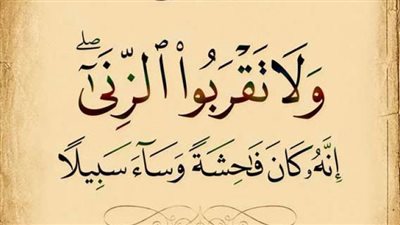 وَلَا تَقْرَبُوا۟ ٱلزِّنَىٰٓ ۖ
إِنَّهُۥ كَانَ فَـٰحِشَةً وَسَآءَ سَبِيلًا